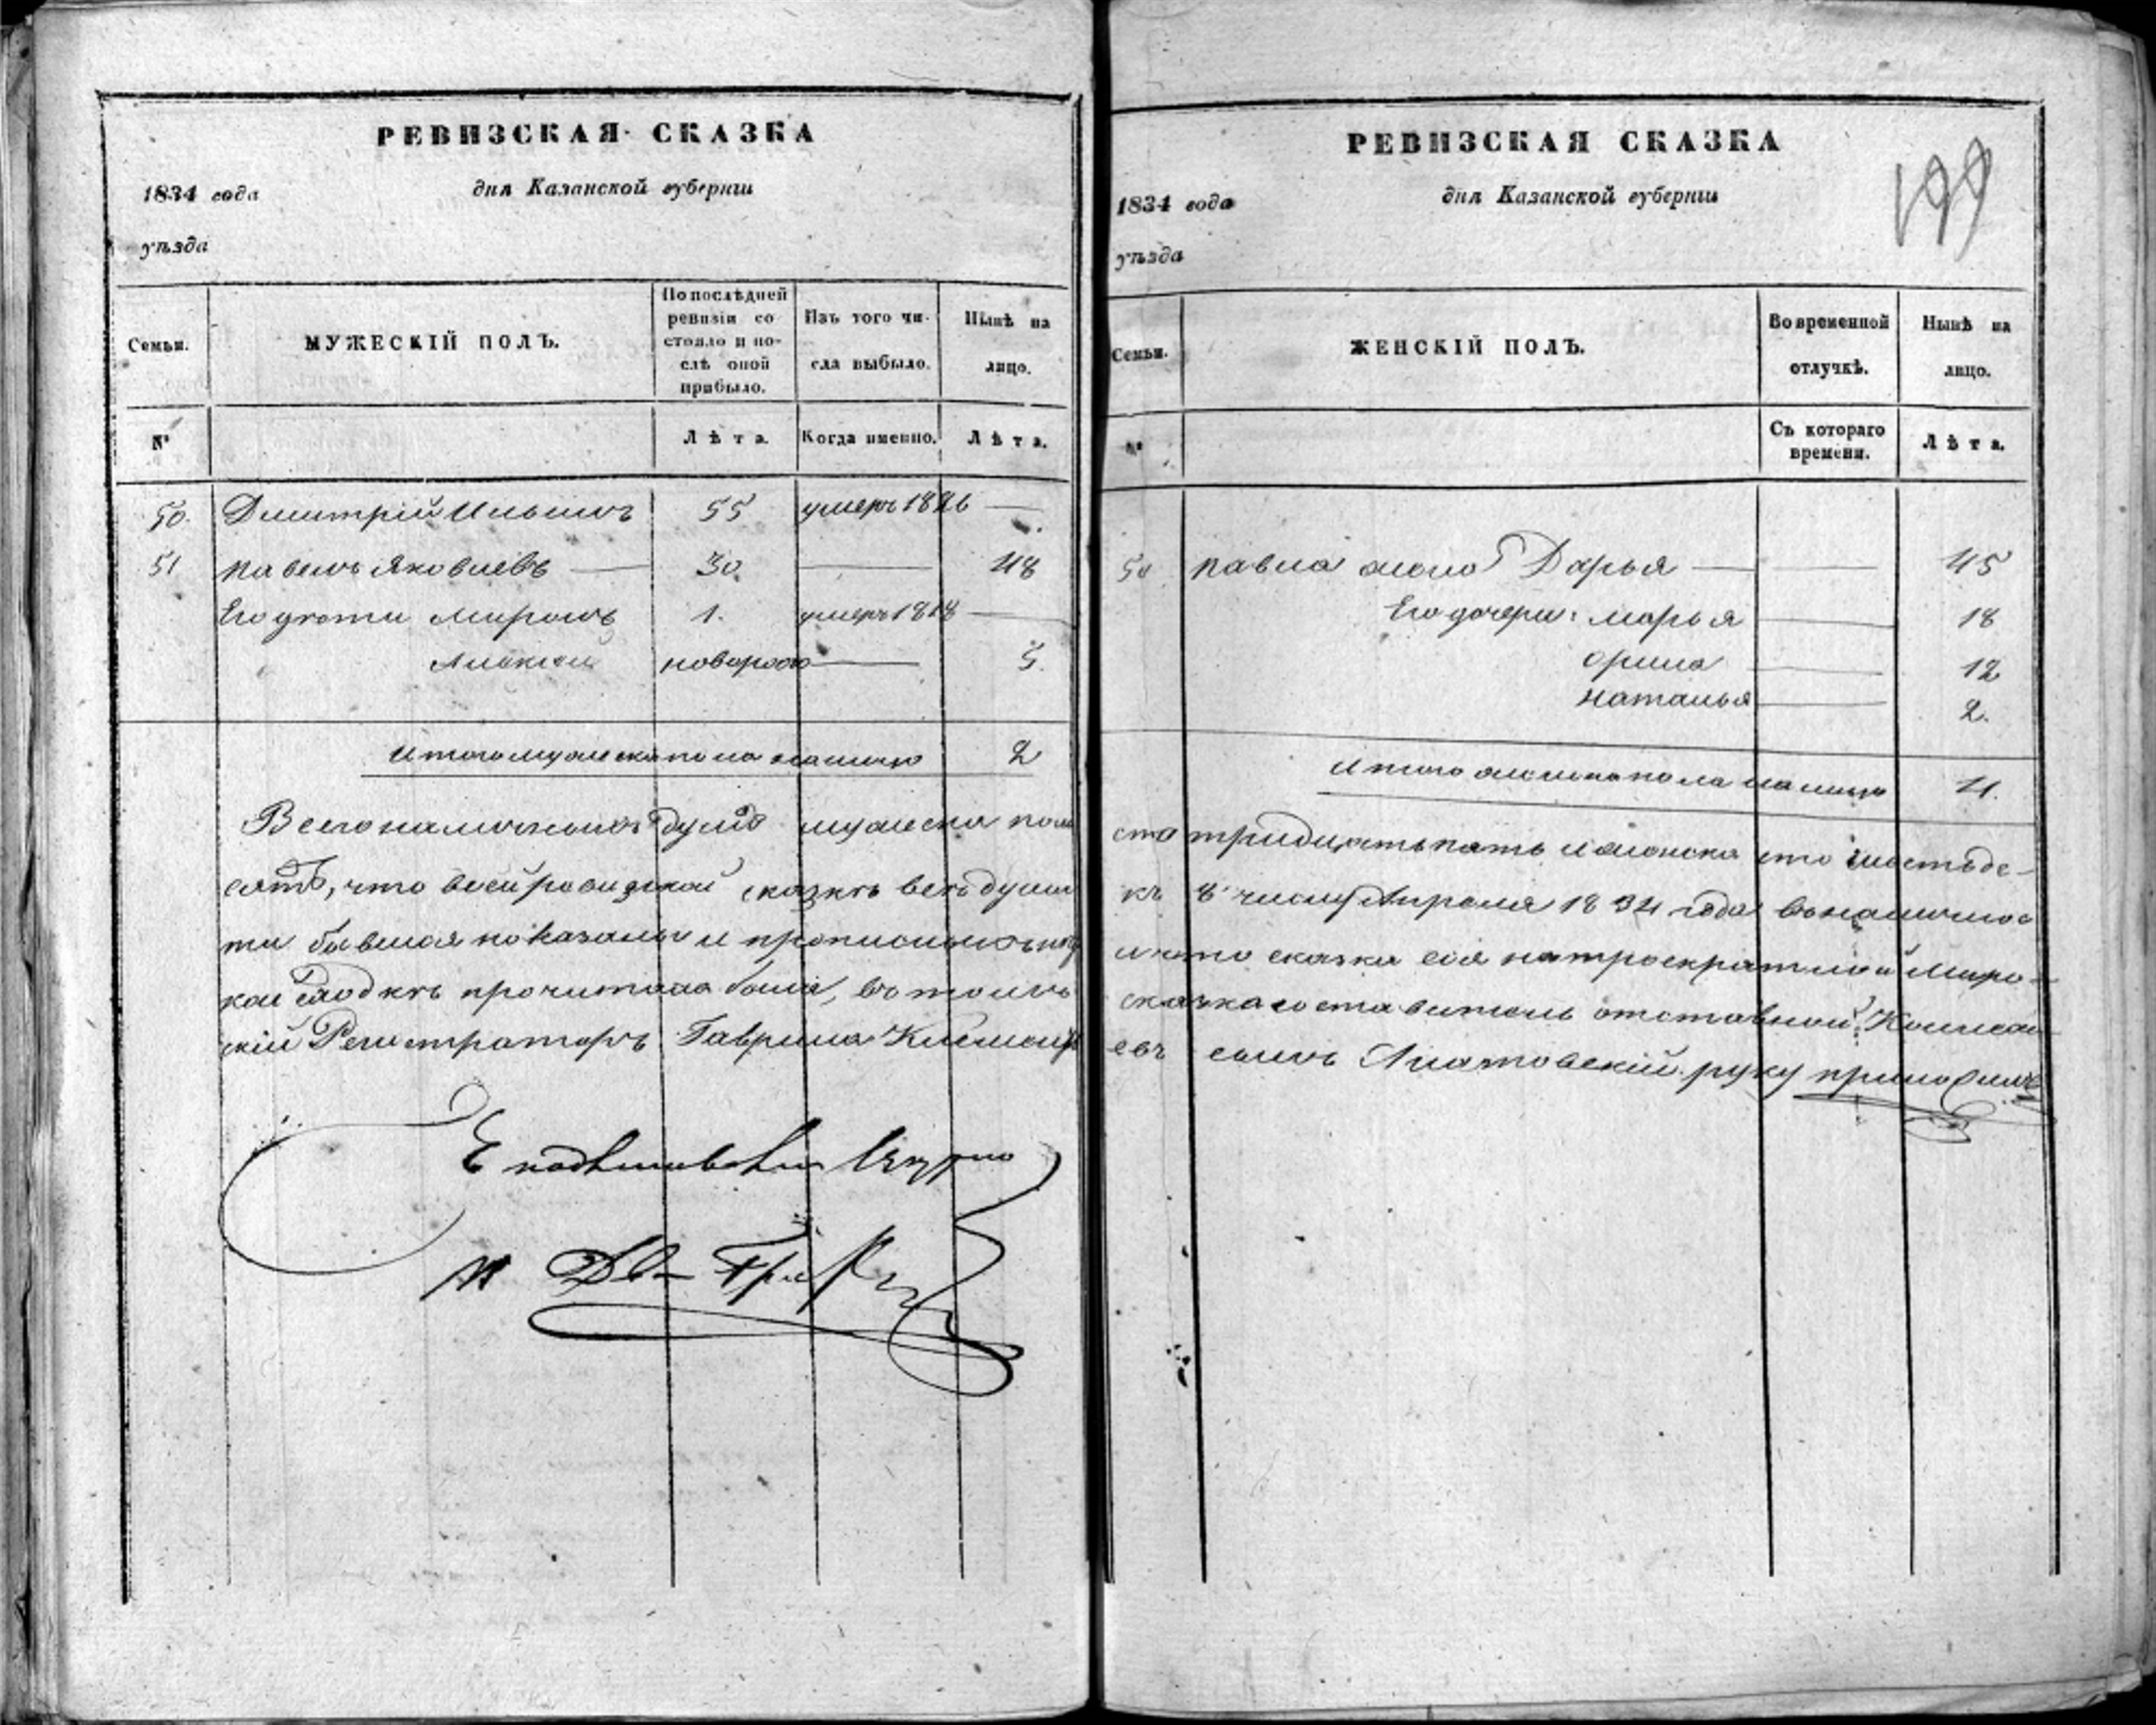 РЕВИЗСКАЯ СКАЗКА
1834 года дня Казанской губернiи
уѣзда
Семьи. МУЖЕСКIЙ ПОЛЪ. По послѣдней ревизiи состояло и послѣ оной прибыло. Изъ того числа выбыло. Нынѣ на лицо.
№ Лѣта. Когда именно. Лѣта.
50. Дмитрiй Ильинъ 55 умеръ 1826 —
51 Павелъ Яковлевъ — 30 — 48
Его дѣти Миронъ 1. умеръ 1818 —
Алексей новорож — 5.
Итого мужеска пола налицо 2
Всего наличныхъ душъ мужеска пола
сятъ, что всей ревизской сказкѣ всѣ души
ти бывшая показаны и
кой сходкѣ прочитана была, въ томъ
скiй Регистраторъ Гаврила
РЕВИЗСКАЯ СКАЗКА
199
1834 года дня Казанской губернiи
уѣзда
Семьи. ЖЕНСКIЙ ПОЛЪ. Во временной отлучкѣ. Нынѣ на лицо.
№ Съ котораго времени. Лѣта.
Павла жена Дарья — — 45
Его дочери: Марья — 18
Орина — 12
Наталья — 2.
Итого женска пола налицо 4.
сто тридцать пять и женска сто шестьде-
къ числу Апреля 1834 года въ наличнос
и что сказка сiя на троекратной Миро-
сказка составитель отставной
евъ сынъ руку приложилъ